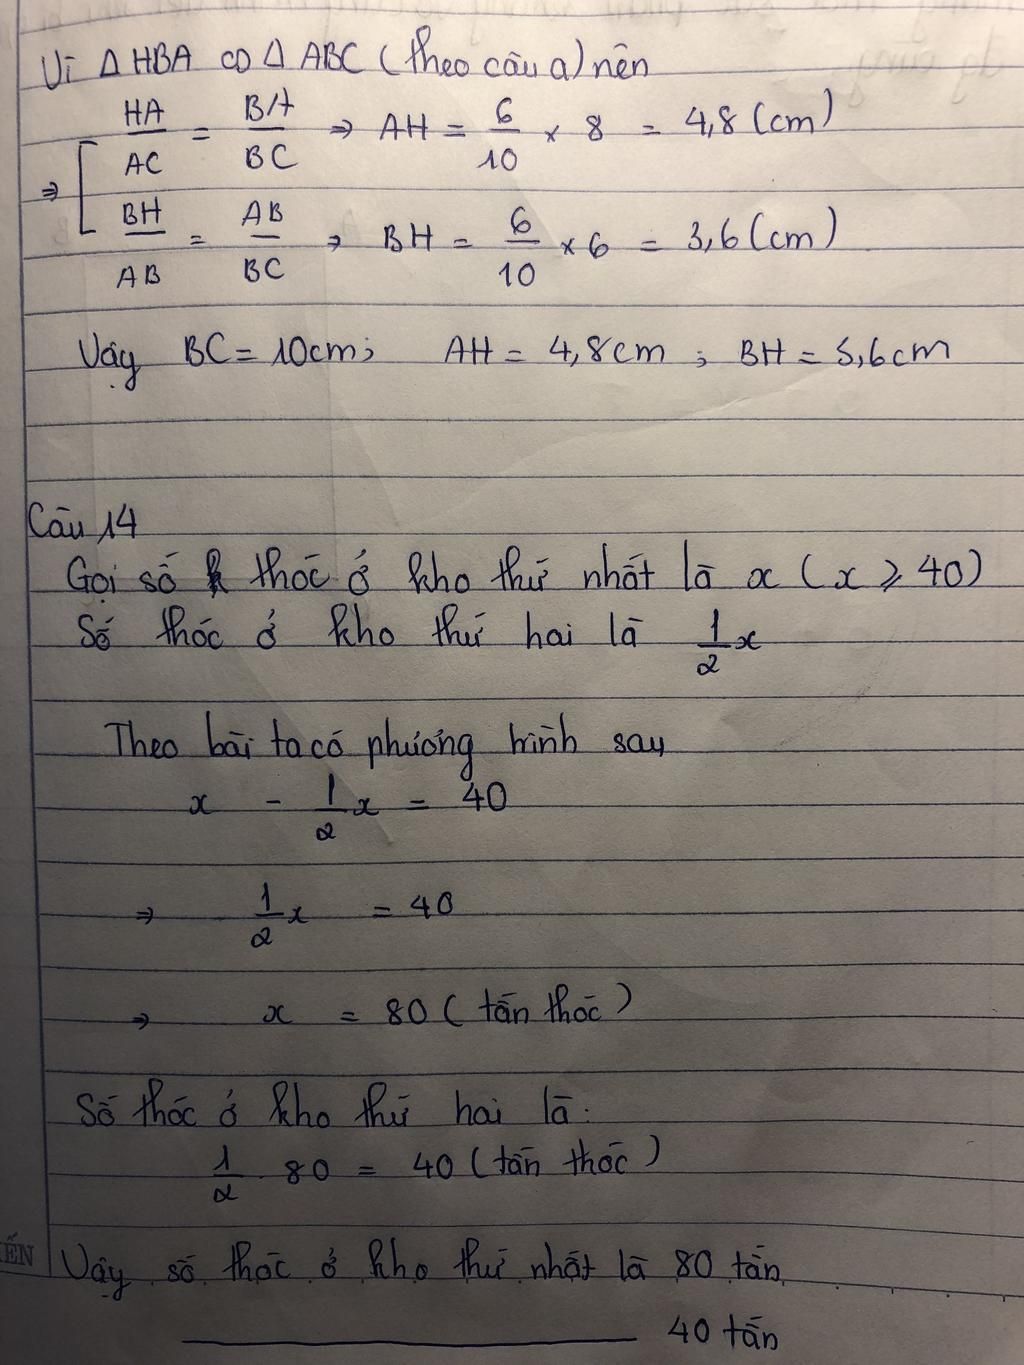 Vì Δ HBA ∽ Δ ABC (theo câu a) nên
⇒ [ HA/AC = BA/BC ⇒ AH = 6/10 × 8 = 4,8 (cm)
BH/AB = AB/BC ⇒ BH = 6/10 × 6 = 3,6 (cm)
Vậy BC = 10cm; AH = 4,8cm ; BH = 3,6cm
Câu 14
Gọi số thóc ở kho thứ nhất là x (x ⩾ 40)
Số thóc ở kho thứ hai là 1/2 x
Theo bài ta có phương trình sau
x - 1/2 x = 40
⇒ 1/2 x = 40
⇒ x = 80 (tấn thóc)
Số thóc ở kho thứ hai là:
1/2 . 80 = 40 (tấn thóc)
Vậy số thóc ở kho thứ nhất là 80 tấn
——— 40 tấn